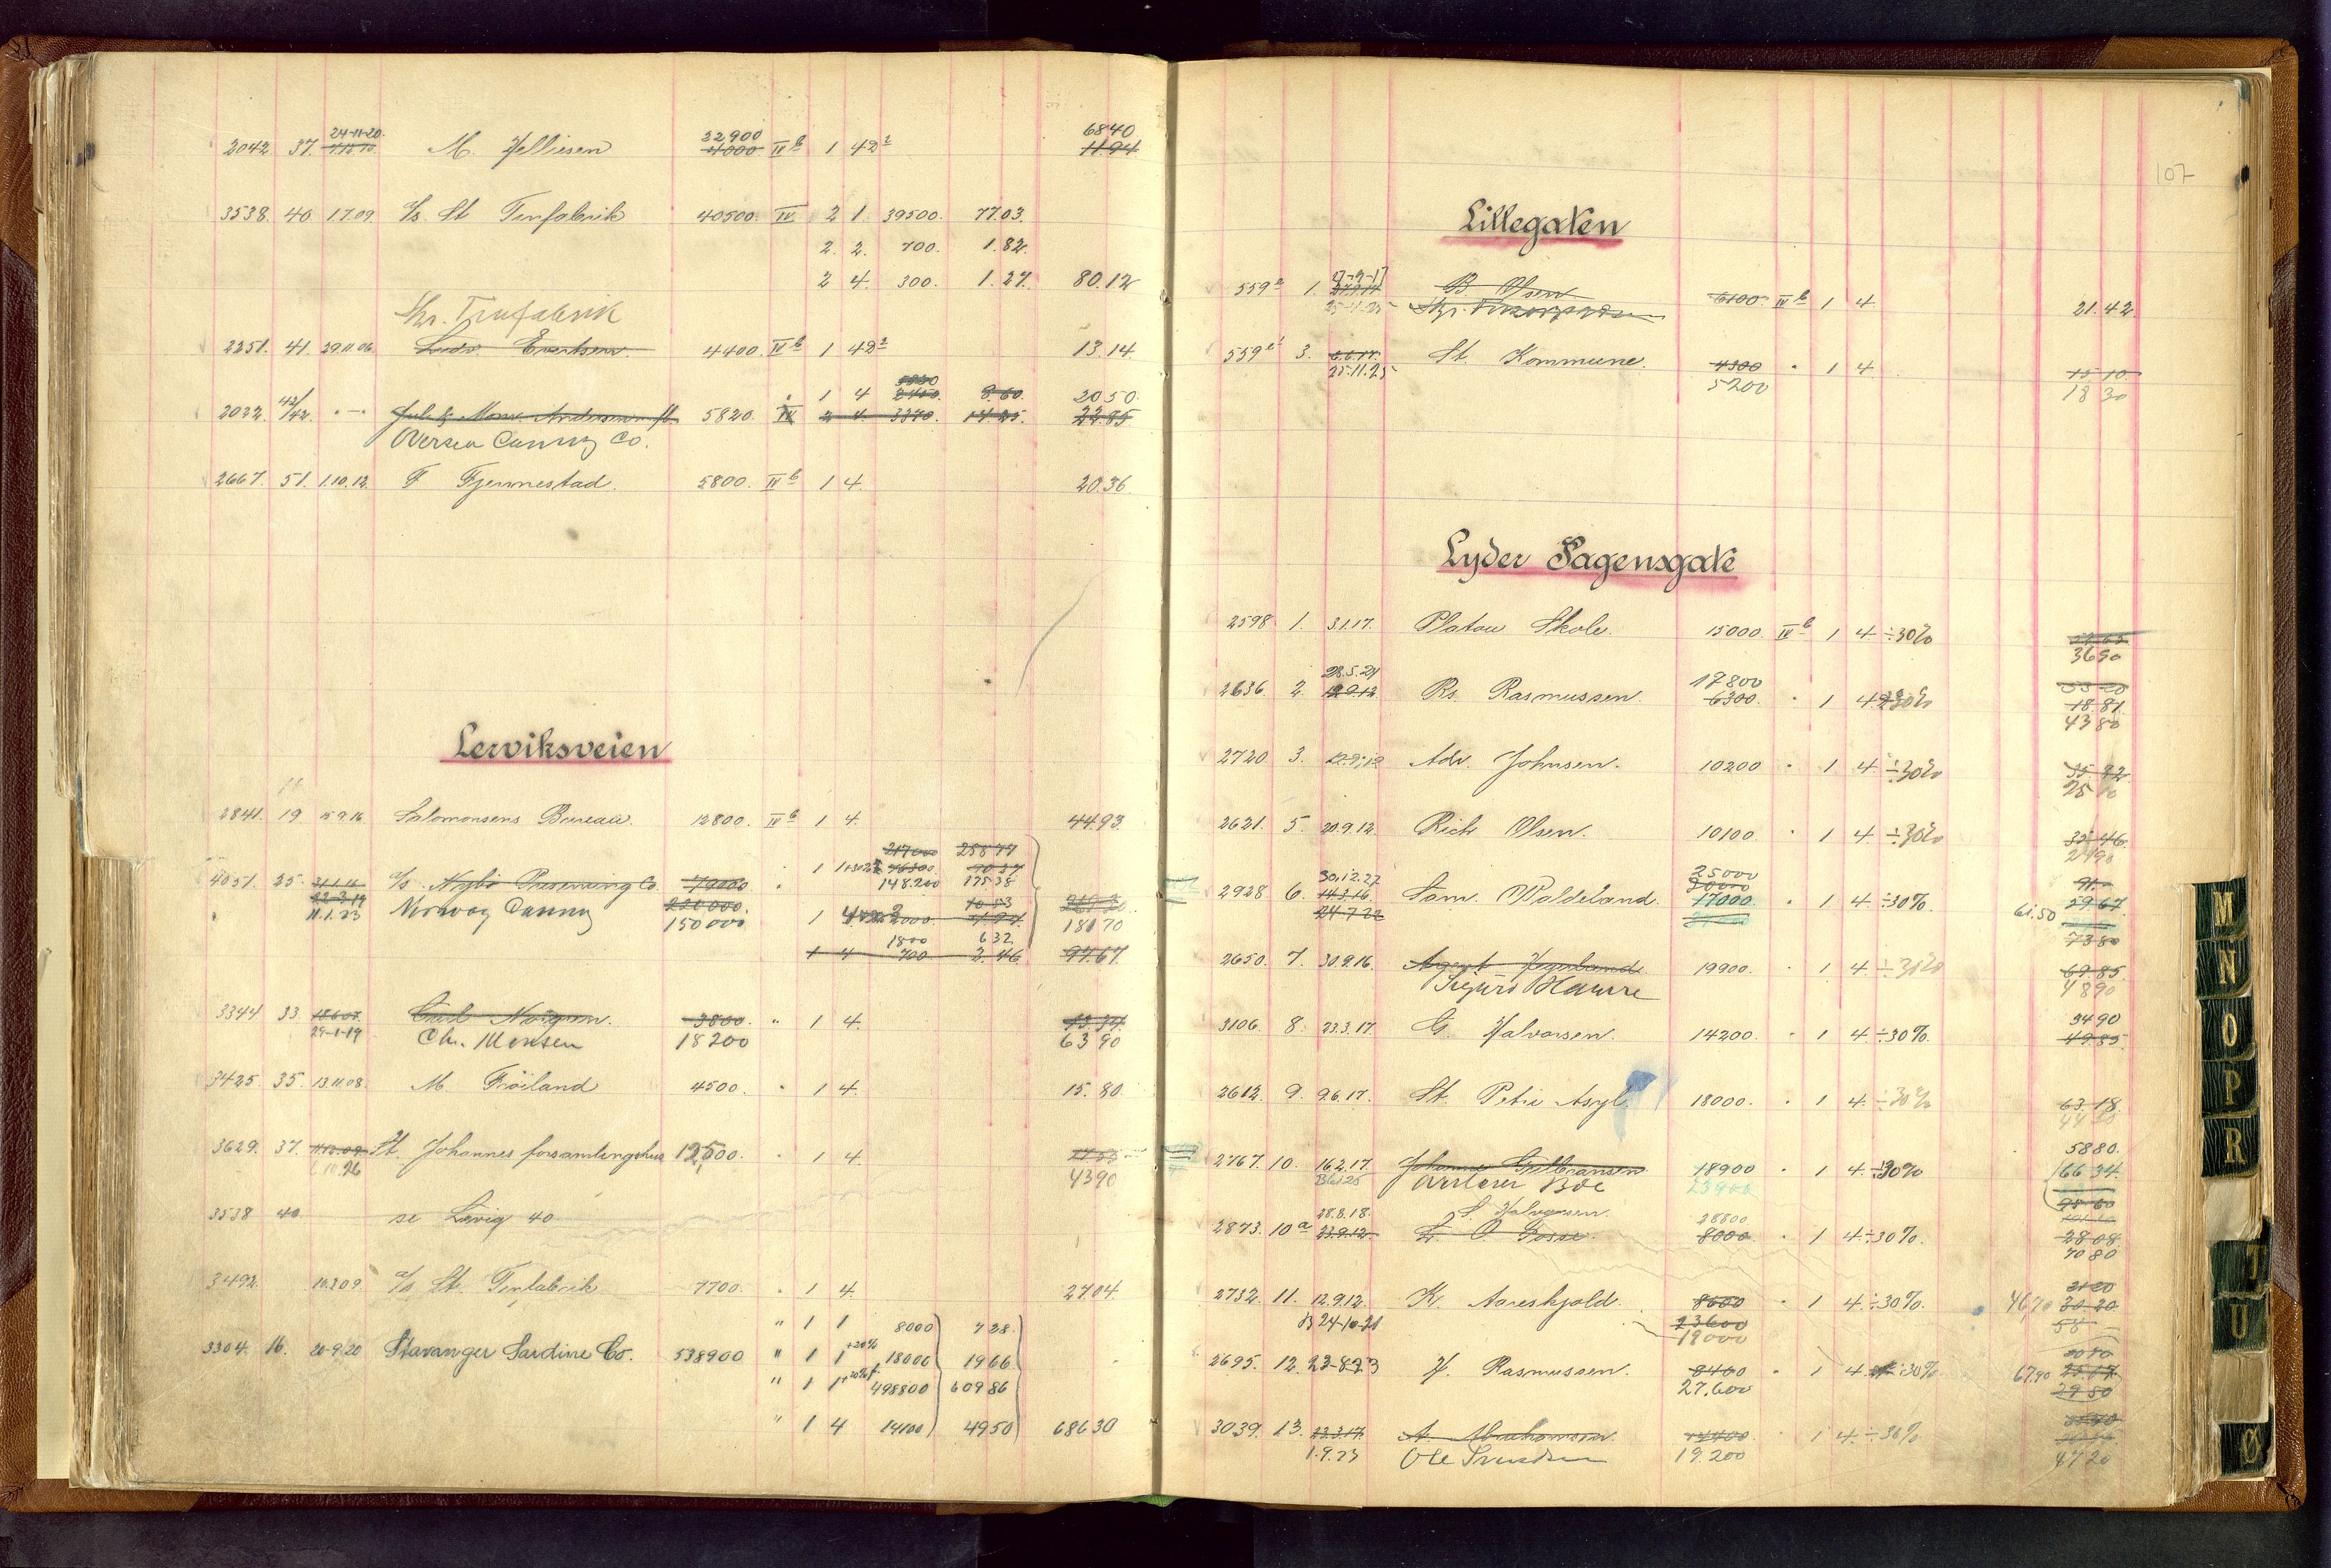 24-11-20. 22900 6840
2042 37. M. Jelliesen 4000 IV b 1 4 2² 11.94
3538. 40 1.7.09. A/s. St. Tinfabrik 40500. IV 2 1. 39500. 77.03.
2. 2. 700. 1.82.
2 4. 300. 1.27. 80.12
Chr. Tinfabrik
2251. 41. 29.11.06 Ludv. Evertsen. 4400 IV b 1 4 2² 13.14.
1 4 2450. 8.60. 20 50.
2032. 42/42. Andersen 5820. IV 2 4. 3370. 14.25. 22.85
Oversea Canning Co.
2667. 51. 1.10.12. F Fjermestad. 5800. IV b 1 4. 20.36.
Lerviksveien
2841. 19 15.9.16 Salomonsens Bureau. 12800. IV b 1 4. 44.93.
217000 258 77
148.200 175 38
4051. 25. 31.1.16 A/s. Nylø Preserving Co. 79000
22-3-19 220.000.
11.1.23 Norway Canning 150000 1 2000 181 70
1800 6 32
1 4 700 2.46 97.67.
3344 33. 18.6.07. Carl Norgren. 3800. " 1 4. 13.34.
29-1-19 Chr. Monsen 18200 63 90
3425. 35. 13.11.08. M. Frøiland 4500. " 1 4. 15.80.
3629. 37. 11.12.09. St. Johannes forsamlingshus 12500. " 1 4.
10.26 43 90
3538 40. se Lervig 40
3492. 10.3.09 A/s St. Tinfabrik 7700. " 1 4. 27.04.
" 1 1 8000 7 28.
3304. 16. 20-9-20 Stavanger Sardine Co. 538900 " 1 1 +20% 18000 19 66
" 1 1 +20% 498800 609 86
" 1 4 14100 49 50 686 30
107
Lillegaten
17-9-17
559ª 1. B. Olsen 6100 IV b 1 4 21.42.
25-11-25
559 3. 6.6.17. St. Kommune. 4300 " 1 4. 15 10.
25.11.25 5200 18 30
Lyder Sagensgate
2598 1. 3.1.17. Platou Skole. 15000. IV b 1 4 ÷30%
36 90
28.5.24 17800
2636. 2. 12.9.12 Rs. Rasmussen. 6300. " 1 4 ÷30% 18.81.
43 80
2720 3. 12.9.12 Adv. Johnsen. 10200 " 1 4 ÷30% 35.82
25 10
2621. 5. 20.9.12. Rich Olsen. 10100. " 1 4 ÷30% 35.46.
24 90
30.12.27 25000 91.-
2928 6. 14.3.16 Sam. Waldeland. 17000. " 1 4. ÷30%. 61.50 29.67
24-7-22 73 80
2650. 7. 30.9.16. Agent 19900. " 1 4. ÷30% 69.85
Sigurd Hauge 48 90
34 90
3106. 8. 23.3.17. G. Halvorsen. 14200. " 1 4. ÷30%. 49.85.
2612. 9. 9.6.17. St. Petri Asyl. 18000. " 1 4. ÷30% 63.18.
44 20
58 80.
2767. 10. 16.2.17. Johannes Gulbransen 18900 " 1 4 ÷30% 66 34.
Overlærer Bøe 23900
28.8.18. S. Halvorsen. 28800
2873. 10ª 23.9.12. L. O. Fosse. 8000 " 1 4 ÷30%. 28 08
70 80
2732 11. 12.9.12. K. Aareskjold. 8600 " 1 4. ÷30%. 46.70 30.20
B 24-10-21 23600
19000
2695. 12. 23-8-23 J. Rasmussen. 8400 " 1 4 ÷30% 67.90
27.600 29 80
3039. 13. 23.3.17. A. Abrahamsen. " 1 4. ÷30%
1.9.23 Ole 19.200 47 20
M
N
O
P
R
U
Ø